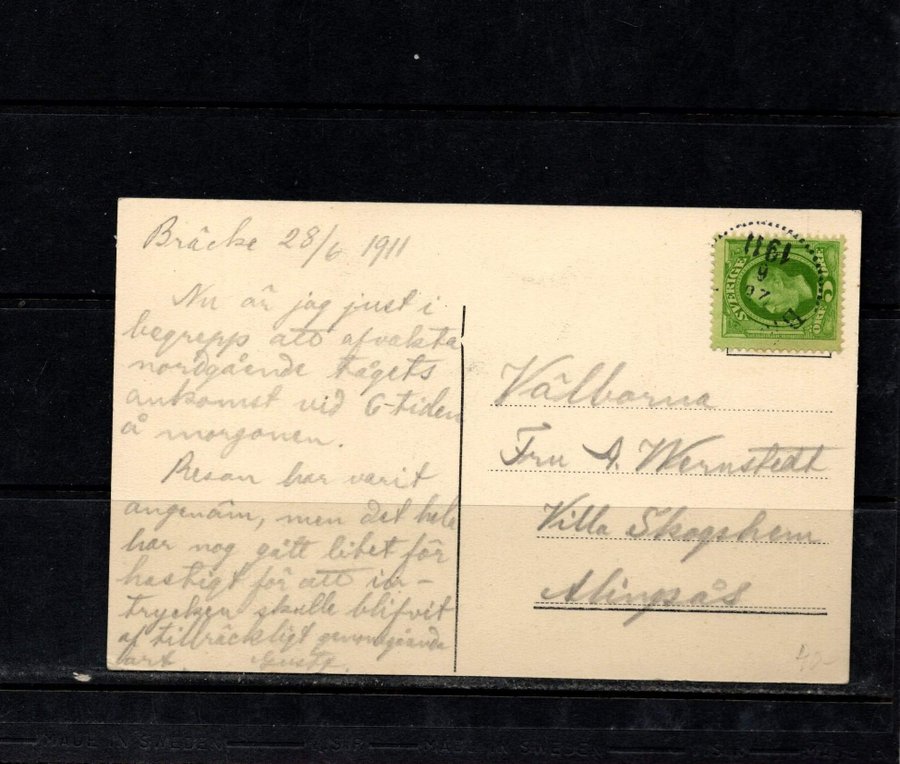 Bräcke 28/6 1911
Nu är jag just i
begrepp att afvakta
nordgående tågets
ankomst vid 6-tiden
å morgonen.
Resan har varit
angenäm, men det hela
har nog gått litet för
hastigt för att in-
trycken skulle blifvit
af tillräckligt genomgående
art. Gustf.
SVERIGE
ÖRE
1911
6
Välborna
Fru A. Wernstedt
Villa Skogshem
Alingsås
40-
MADE IN SWEDEN
MADE IN SWEDEN